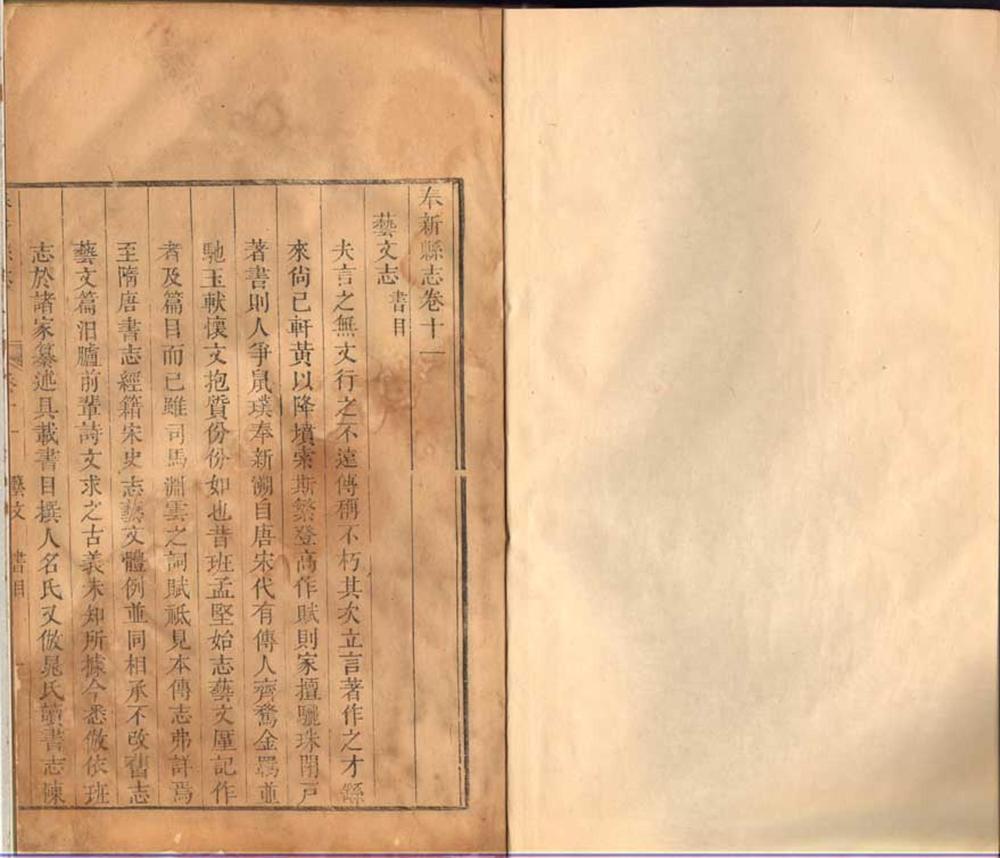 奉新縣志卷十一
藝文志 書目
夫言之無文行之不遠傳稱不朽其次立言著作之才繇
來尚已軒黃以降墳索斯繁登高作賦則家擅驪珠閉戸
著書則人爭鼠璞奉新溯自唐宋代有傳人齊騖金羈並
馳玉軑懷文抱質份份如也昔班孟堅始志藝文厪記作
者及篇目而已雖司馬淵雲之詞賦祗見本傳志弗詳焉
至隋唐書志經籍宋史志藝文體例並同相承不改舊志
藝文篇汨臚前輩詩文求之古義未知所據今悉倣依班
志於諸家纂述具載書目撰人名氏又倣晁氏讀書志陳
藝文 書目